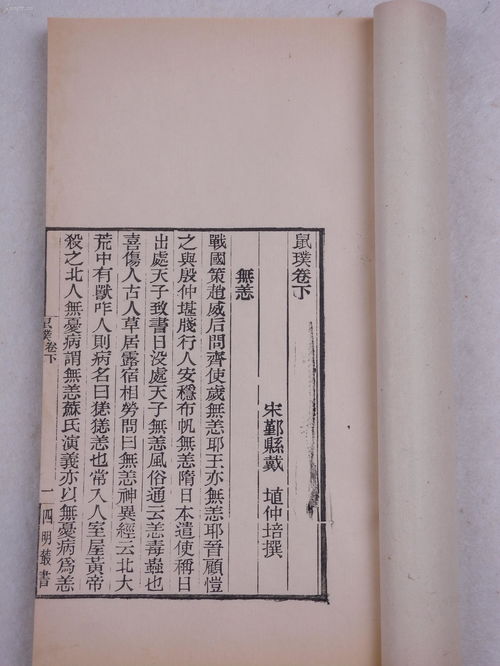 鼠璞卷下
宋鄞縣戴　埴仲培撰
無恙
戰國策趙威后問齊使歲無恙耶王亦無恙耶晉顧愷
之與殷仲堪牋行人安穩布帆無恙隋日本遣使稱日
出處天子致書日沒處天子無恙風俗通云恙毒蟲也
喜傷人古人草居露宿相勞問曰無恙神異經云北大
荒中有獸咋人則病名曰㺊㺊恙也常入人室屋黃帝
殺之北人無憂病謂無恙蘇氏演義亦以無憂病爲恙
鼠璞卷下
一
四明叢書